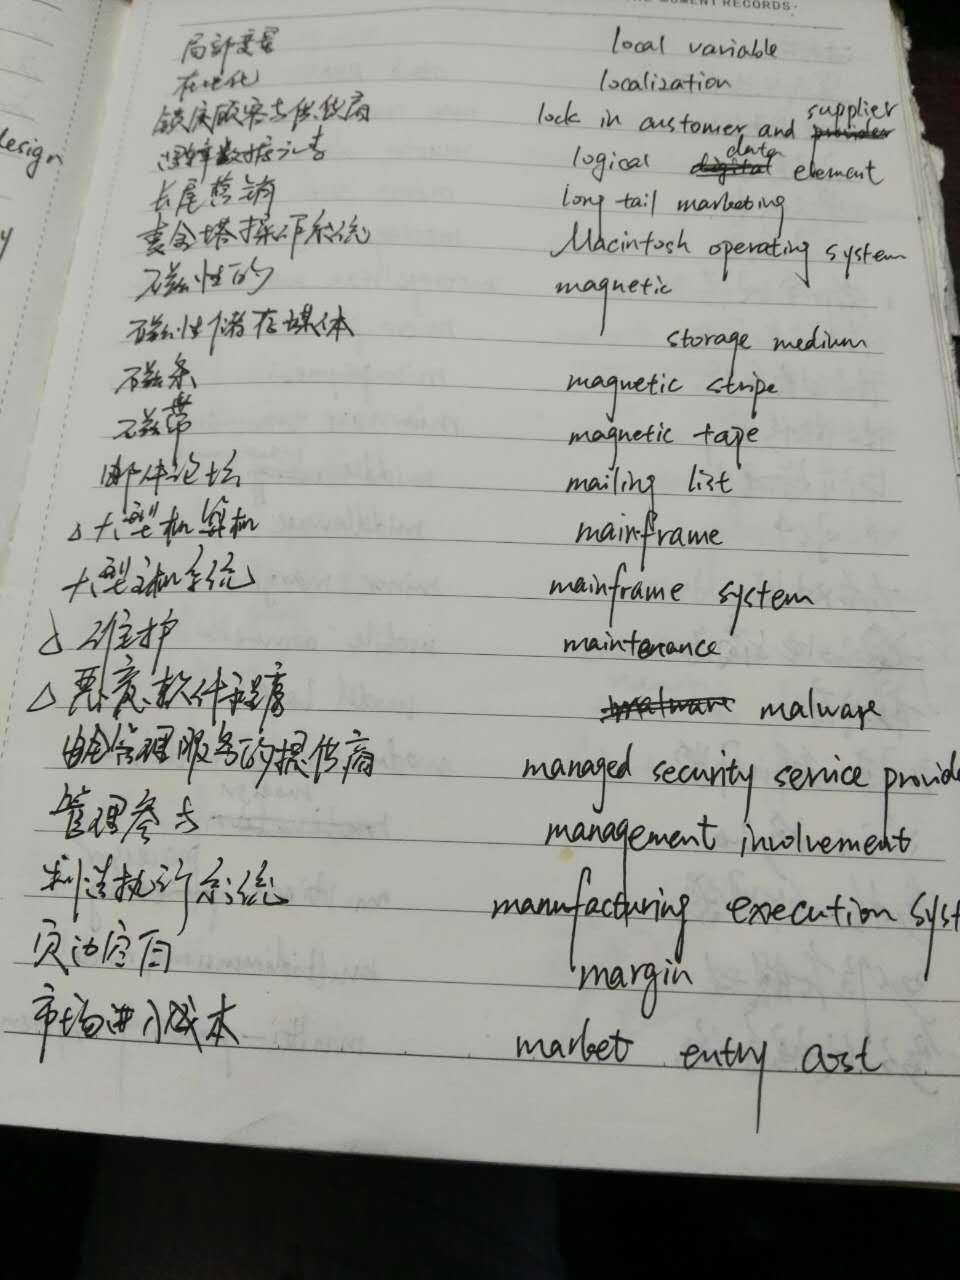 THE MOMENT RECORDS·
局部变量 local variable
在地化 localization
锁住顾客与供应商 lock in customer and supplier
逻辑数据元素 logical data element
长尾营销 long tail marketing
麦金塔操作系统 Macintosh operating system
磁性的 magnetic
磁性储存媒体 storage medium
磁条 magnetic stripe
磁带 magnetic tape
邮件论坛 mailing list
△大型机算机 mainframe
大型主机系统 mainframe system
△维护 maintenance
△恶意软件程序 malware
管理服务的提供商 managed security service provide
管理参与 management involvement
制造执行系统 manufacturing execution syst
页边空白 margin
市场进入成本 market entry cost
esign
y